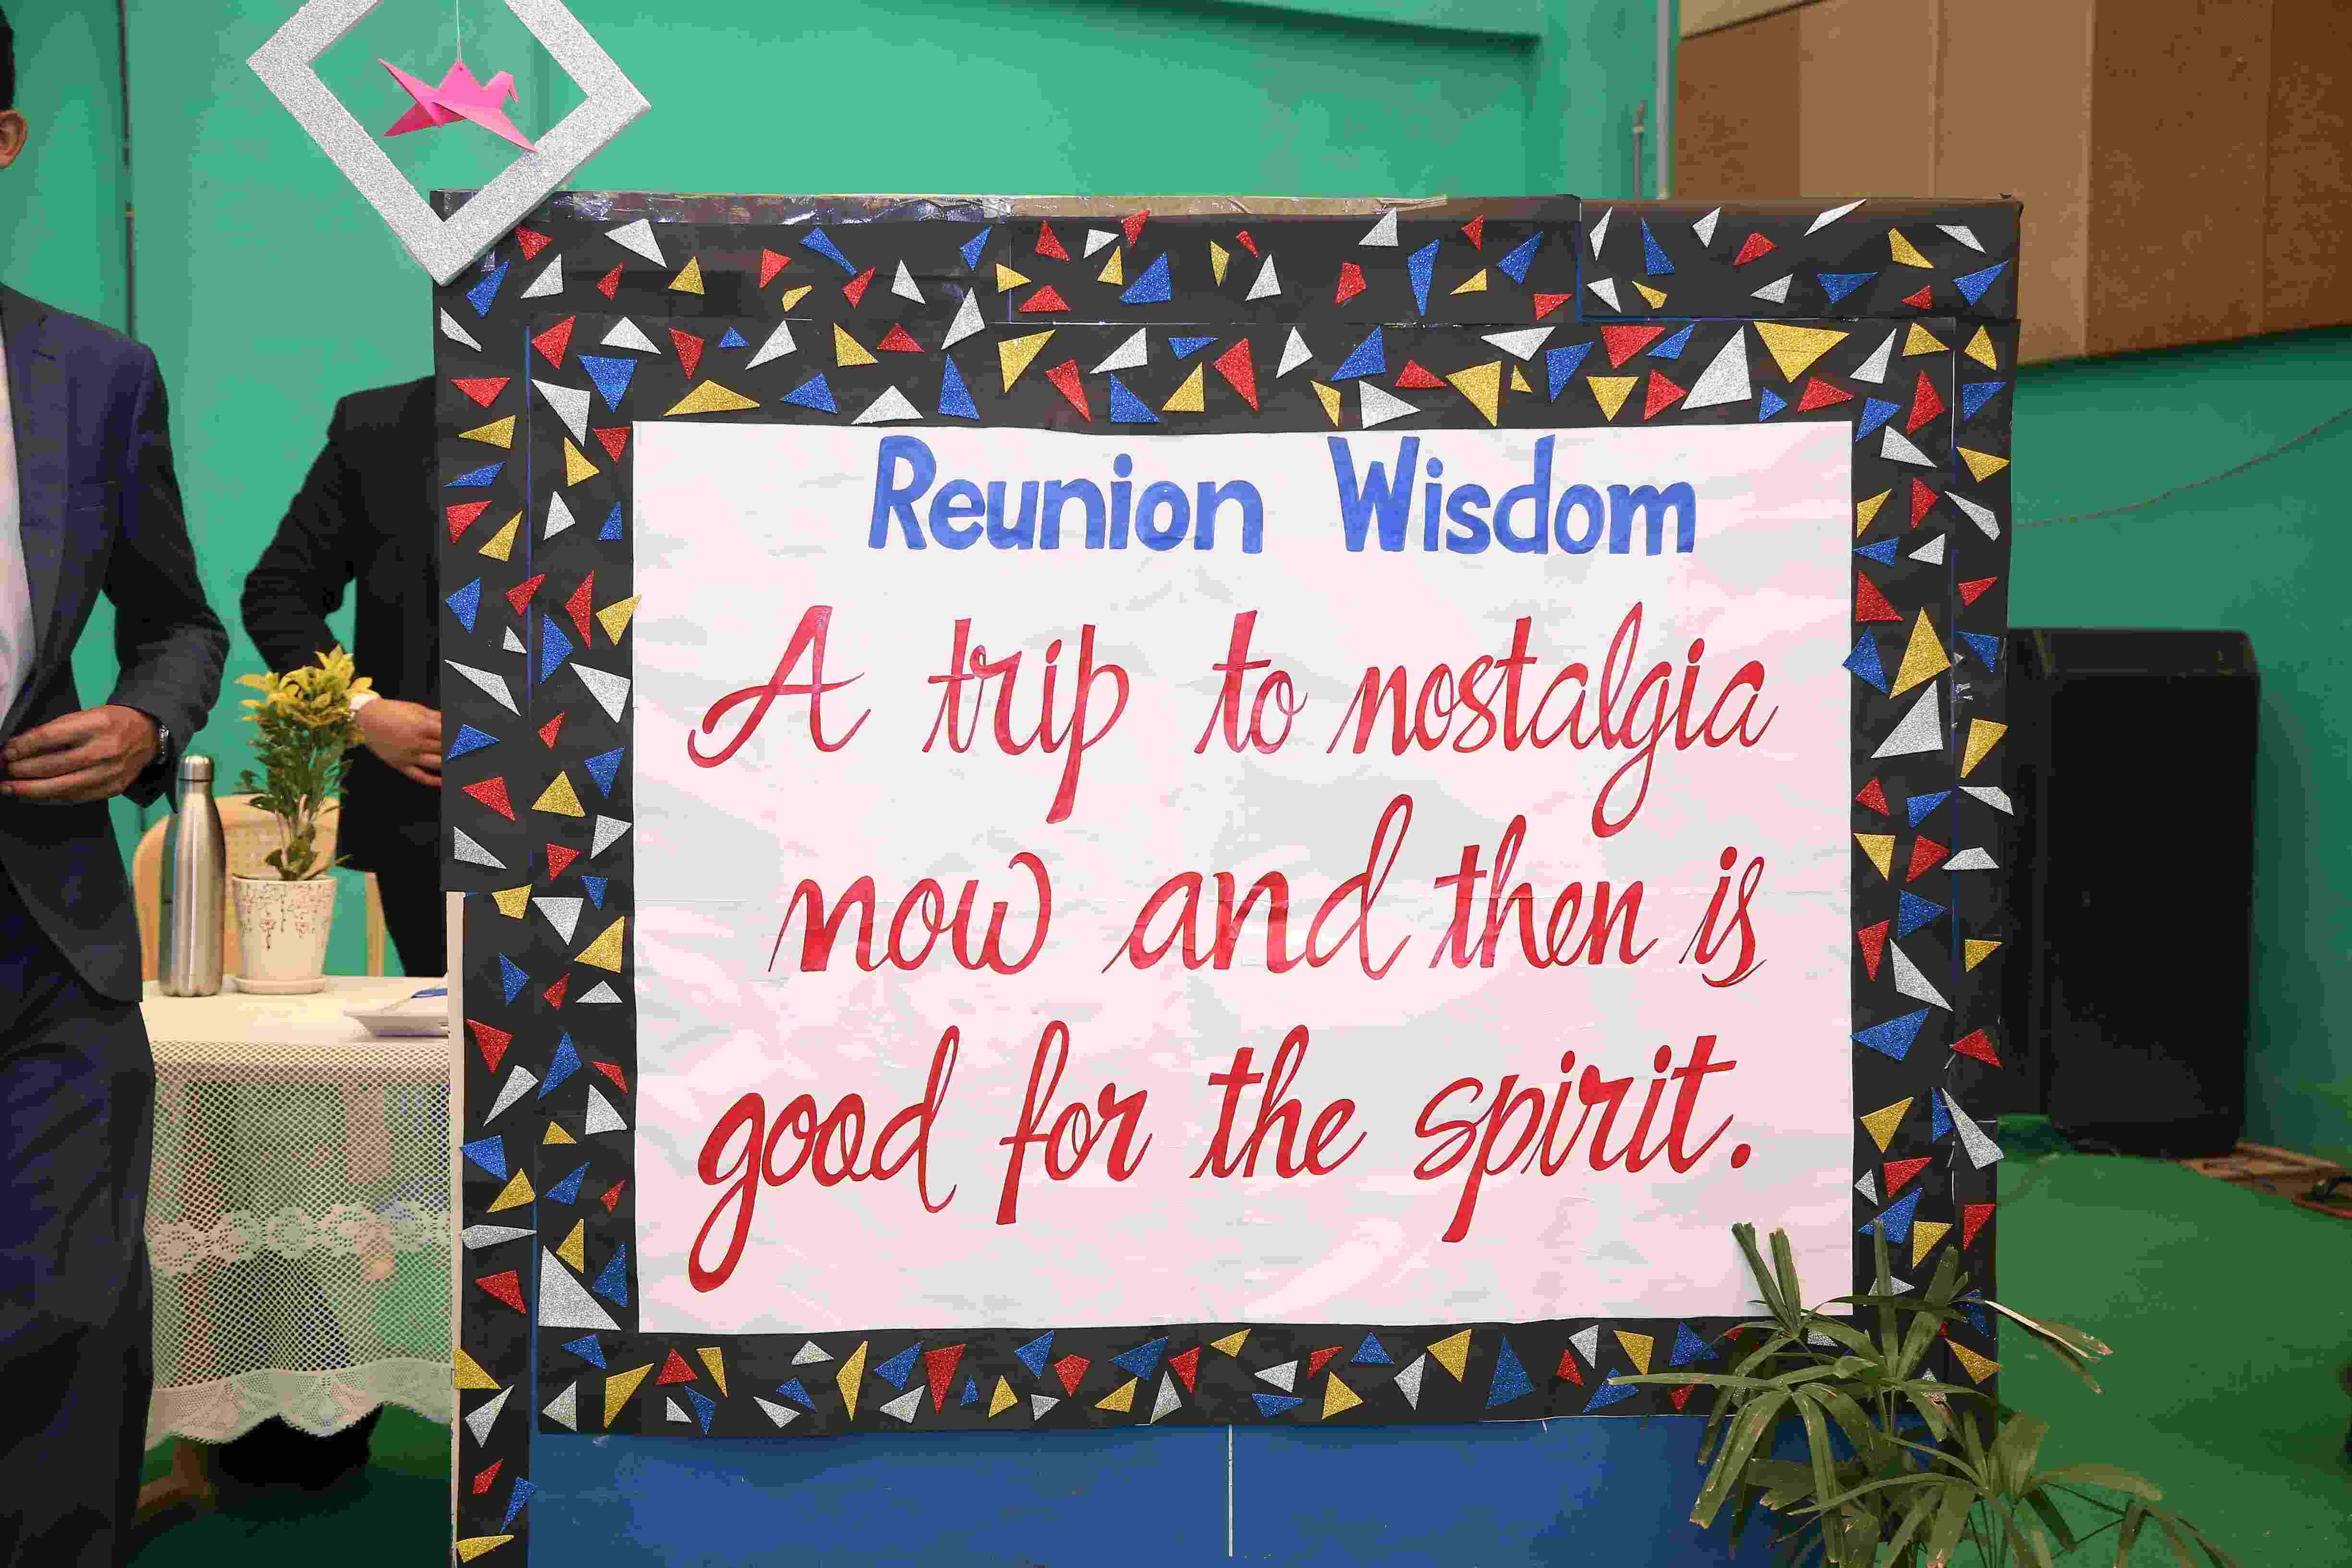 Reunion Wisdom
A trip to nostalgia
now and then is
good for the spirit.